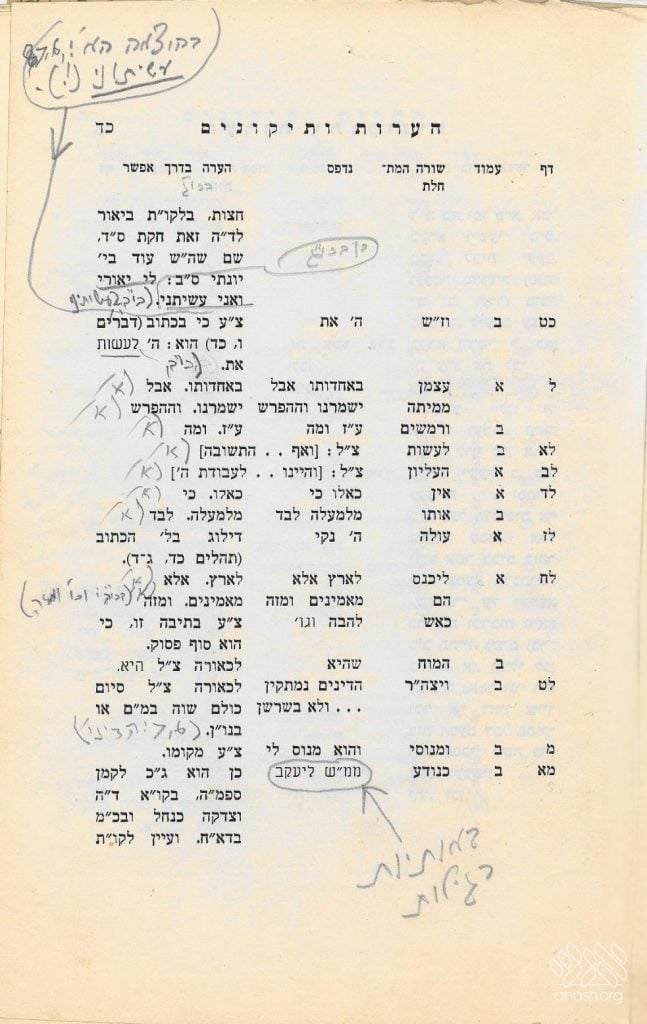 בהוצאה הא'
עשיתוני (!).
הערות ותיקונים כד
דף עמוד שורה המת־ נדפס הערה בדרך אפשר
חלת
חצות, בלקו״ת ביאור
לד״ה זאת חקת ס״ד,
שם שה״ש עוד בי׳
יונתי ס״ב: לי יאורי
ואני עשיתני.
כט ב וז״ש ה׳ את צ״ע כי בכתוב (דברים
ו, כד) הוא: ה׳ לעשות
את.
ל א עצמן באחדותו אבל באחדותו. אבל (א)
ממיתה ישמרנו וההפרש ישמרנו. וההפרש (א)
ב ורמשים ע״ז ומה ע״ז. ומה (א)
לא ב לעשות צ״ל: [ואף . . התשובה] (א)
לב א העליון צ״ל: [והיינו . . לעבודת ה׳] (א)
לד א אין כאלו כי כאלו. כי (א)
ב אותו מלמעלה לבד מלמעלה. לבד (א)
לז א עולה ה׳ נקי דילוג בל׳ הכתוב
(תהלים כד, ג־ד).
לח א ליכנס לארץ אלא לארץ. אלא (א)
הם מאמינים ומזה מאמינים. ומזה
כאש להבה וגו׳ צ״ע בתיבה זו, כי
הוא סוף פסוק.
ב המוח שהיא לכאורה צ״ל היא.
לט ב ויצה״ר הדינים נמתקין לכאורה צ״ל סיום
. . . ולא בשרשן כולם שוה במ״ם או
בנו״ן.
מ ב ומנוסי והוא מנוס לי צ״ע מקומו.
מא ב כנודע ממ״ש ליעקב כן הוא ג״כ לקמן
ספמ״ה, בקו״א ד״ה
וצדקה כנחל ובכ״מ
בדא״ח. ועיין לקו״ת
באותיות
רגילות
anash.org